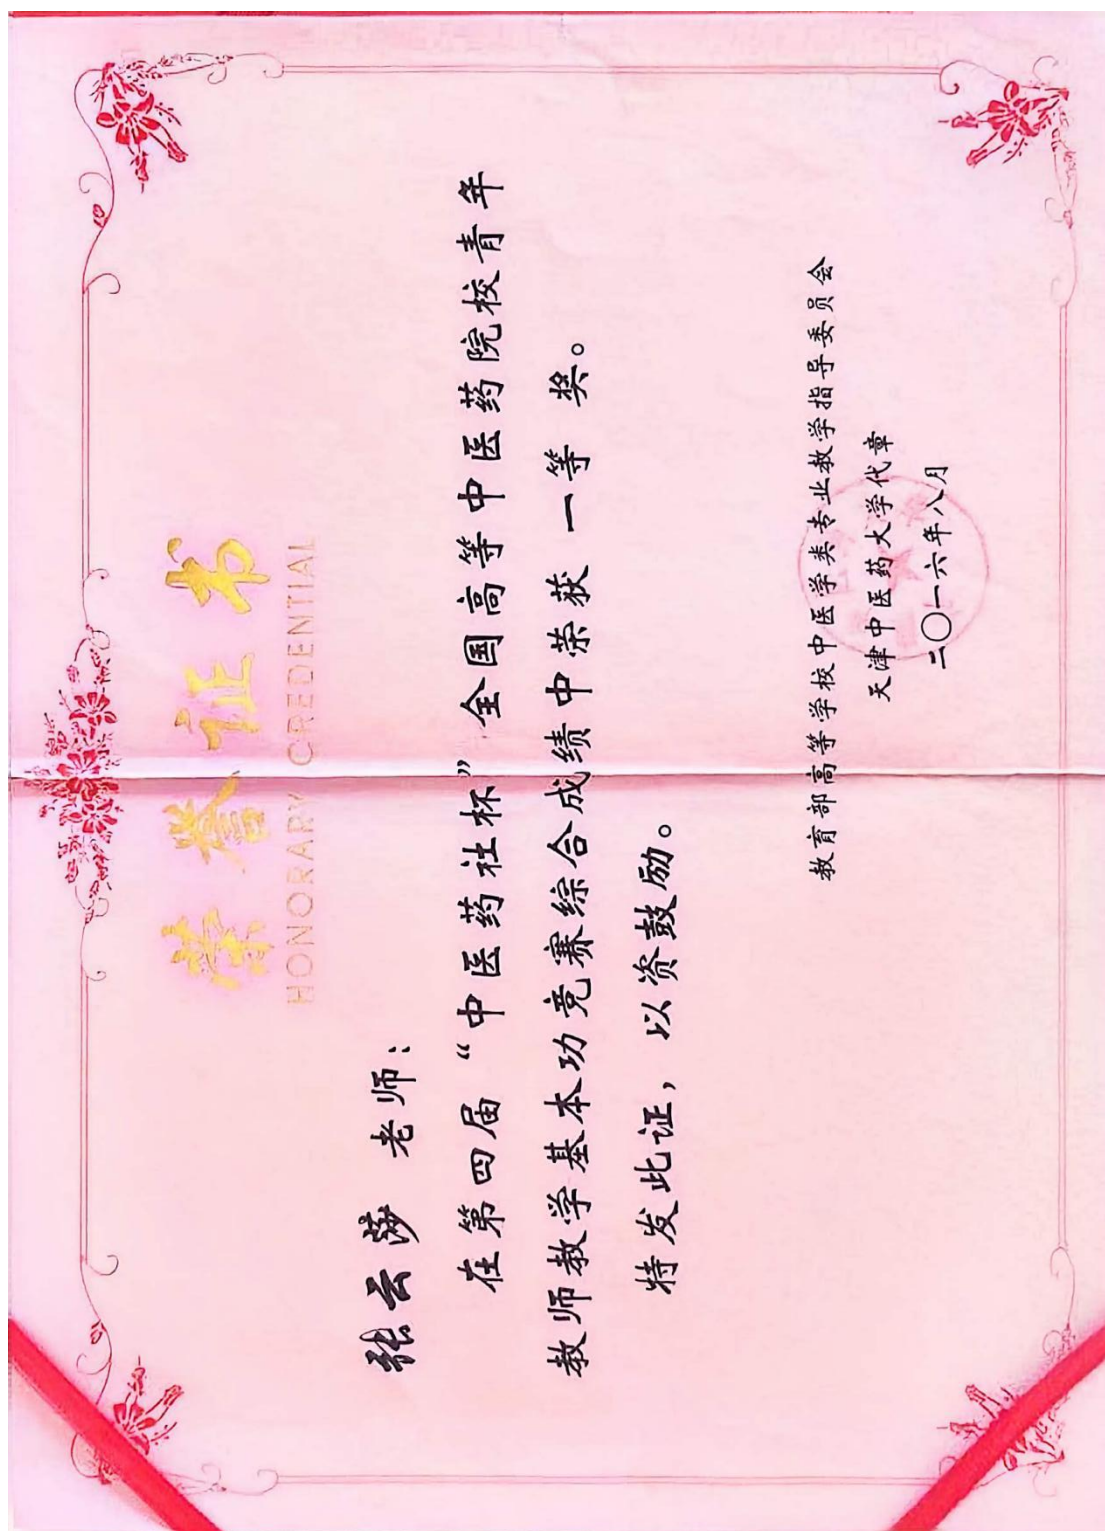 荣誉证书
HONORARY CREDENTIAL
张云莎 老师：
在第四届“中医药社杯”全国高等中医药院校青年
教师教学基本功竞赛综合成绩中荣获 一等 奖。
特发此证，以资鼓励。
教育部高等学校中医学类专业教学指导委员会
天津中医药大学代章
二〇一六年八月